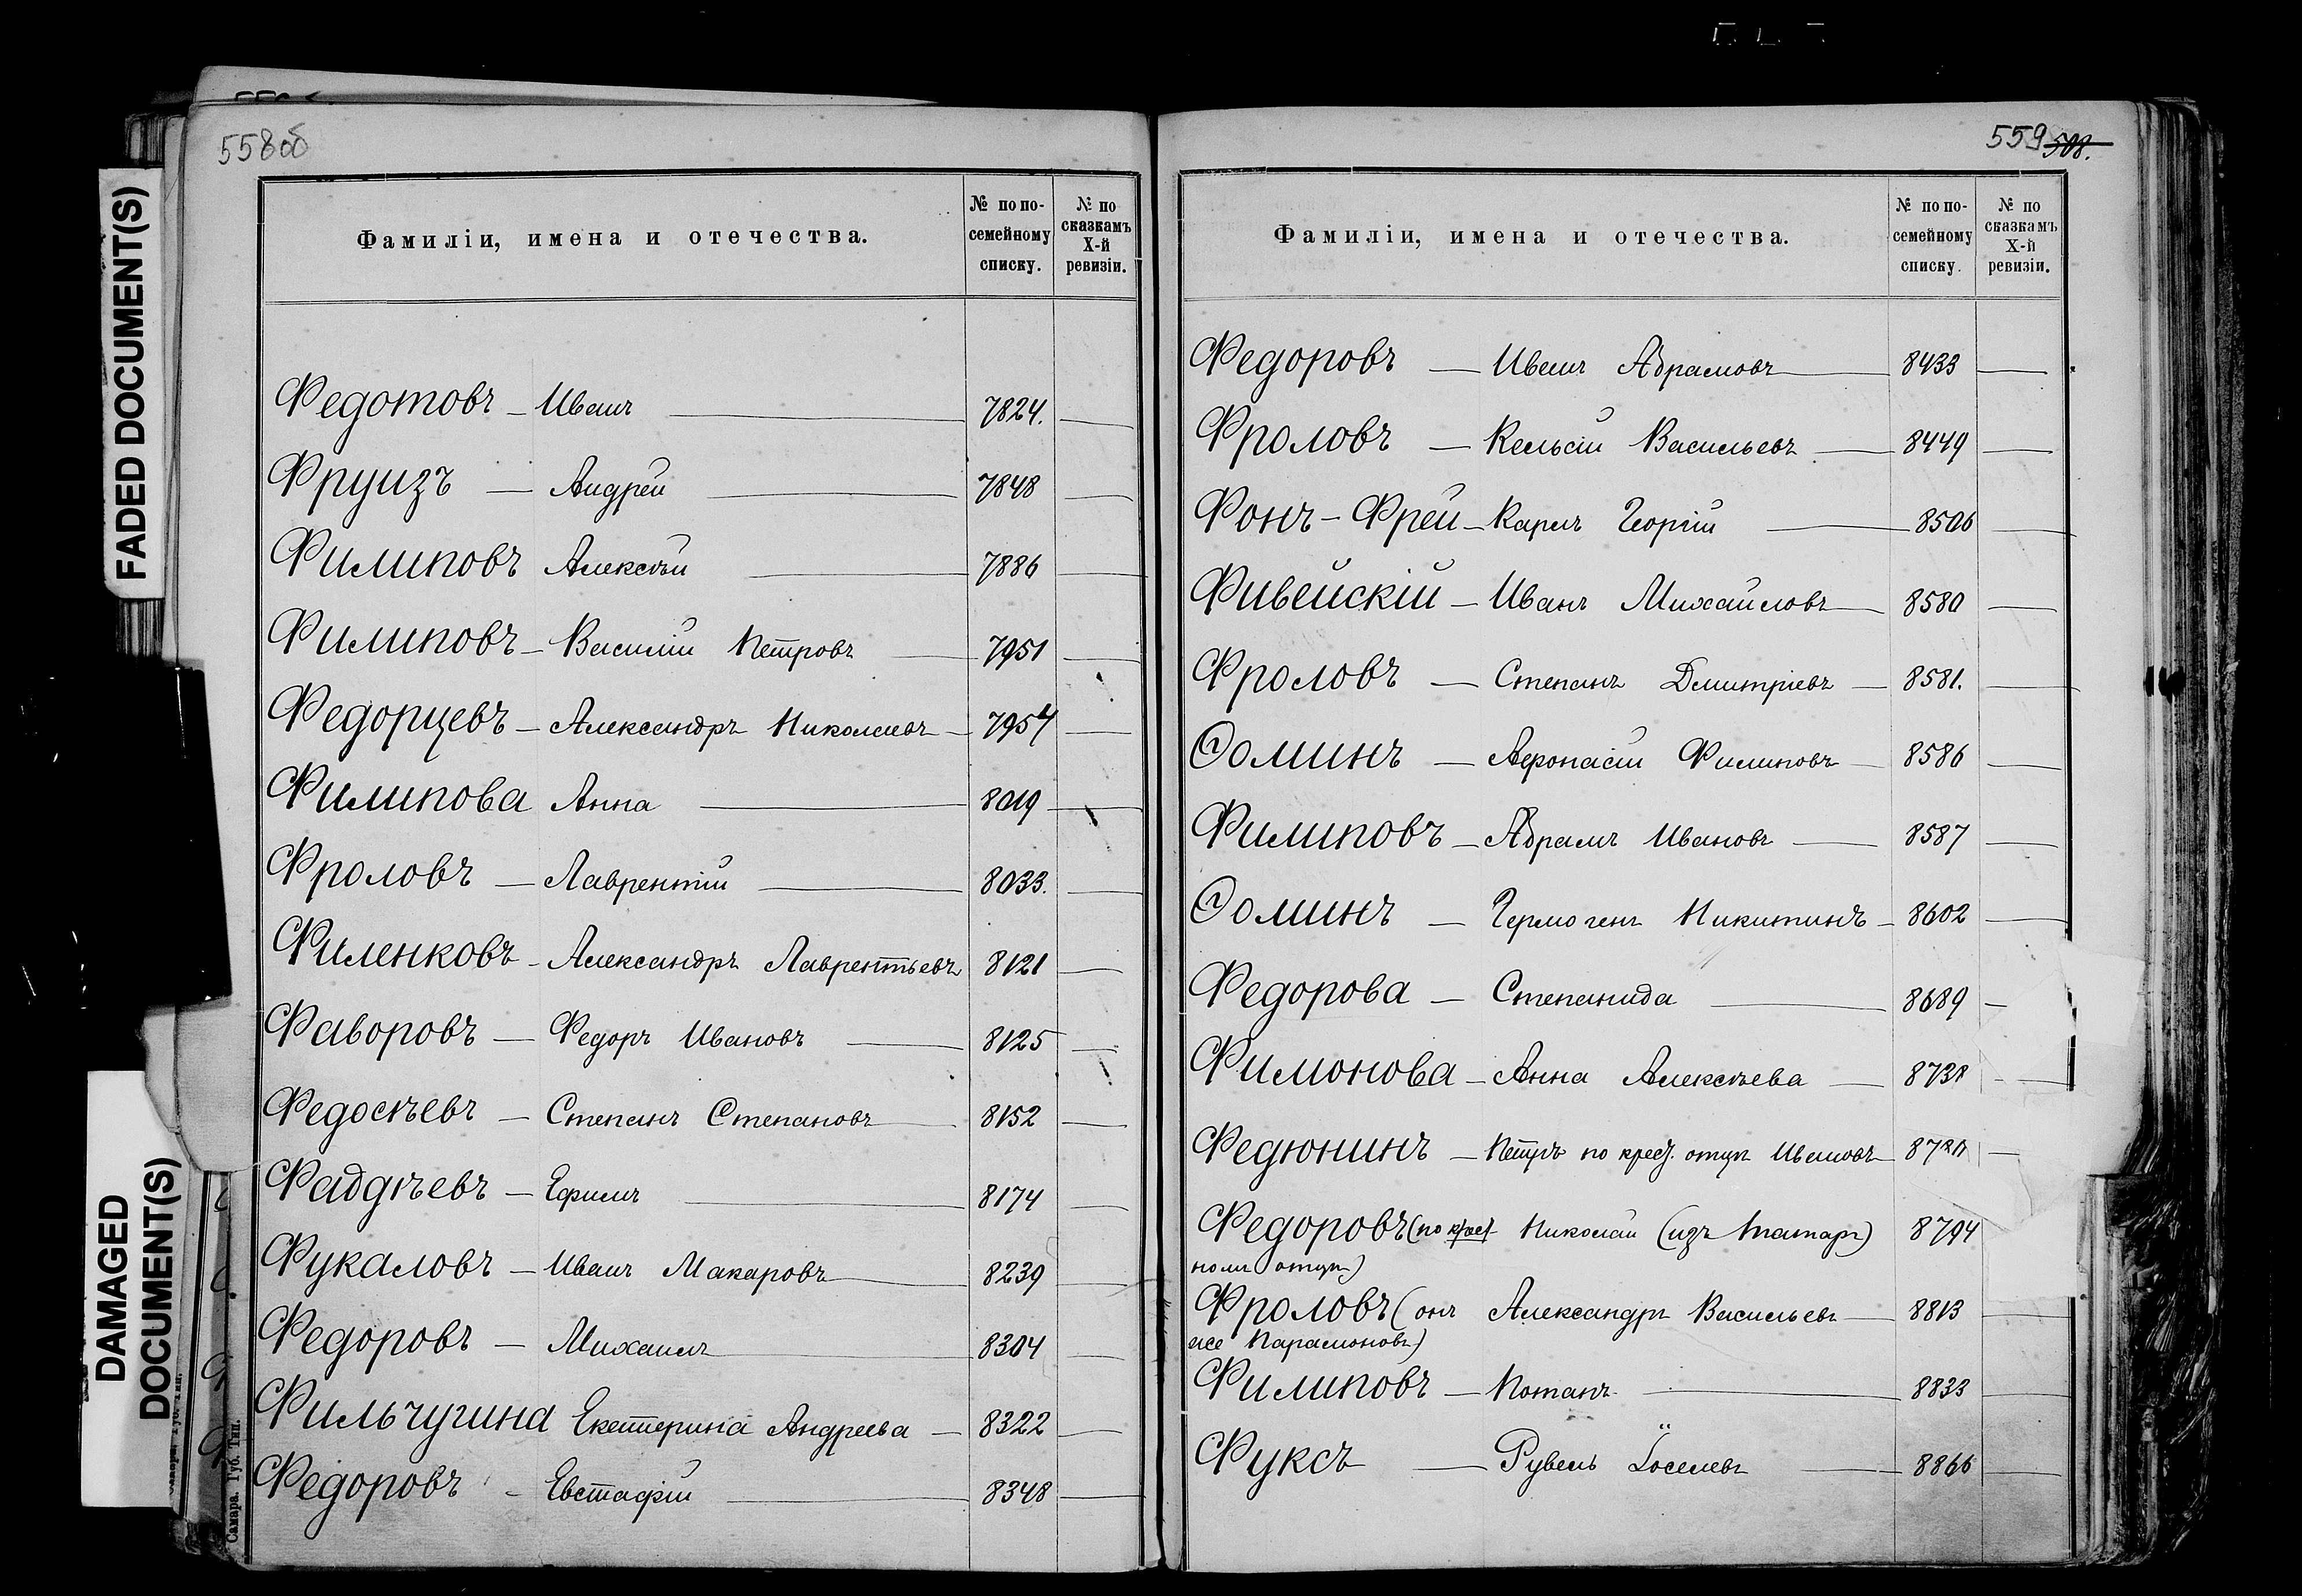 558об
Фамиліи, имена и отечества.
№ по по-
семейному
списку.
№ по
сказкамъ
X-й
ревизіи.
Федотовъ - Иванъ 7824.
Фрунзъ - Андрей 7848
Филиповъ Алексѣй 7886
Филиповъ - Василій Петровъ 7951
Федорцевъ - Александръ Николаевъ 7954
Филипова Анна 8019
Фроловъ - Лаврентій 8033.
Филенковъ - Александръ Лаврентьевъ 8121
Фаворовъ - Федоръ Ивановъ 8125
Федосѣевъ - Степанъ Степановъ 8152
Фаддѣевъ - Ефимъ 8174
Фукаловъ - Иванъ Макаровъ 8239
Федоровъ - Михаилъ 8304
Фильчугина Екатерина Андреева - 8322
Федоровъ - Евстафій 8348
Самара. Губ. Тип.
559 508.
Фамиліи, имена и отечества.
№ по по-
семейному
списку.
№ по
сказкамъ
X-й
ревизіи.
Федоровъ - Иванъ Абрамовъ 8433
Фроловъ - Кельсій Васильевъ 8449
Фонъ-Фрей - Карлъ Георгій 8506
Фивейскій - Иванъ Михайловъ 8580
Фроловъ - Степанъ Дмитріевъ 8581.
Ѳоминъ - Афонасій Филиповъ 8586
Филиповъ - Абрамъ Ивановъ 8587
Ѳоминъ - Гермогенъ Никитинъ - 8602
Федорова - Степанида 8689
Филонова - Анна Алексѣева
Федюнинъ - Петръ по крест. отцу Ивановъ
Федоровъ (по крест Николай (изъ татаръ) 8794
ному отцу)
Фроловъ (онъ Александръ Васильевъ 8813
же Парамоновъ)
Филиповъ - Потапъ 8833
Фуксъ - Рувель Іоселевъ 8866
FADED DOCUMENT(S)
DAMAGED
DOCUMENT(S)